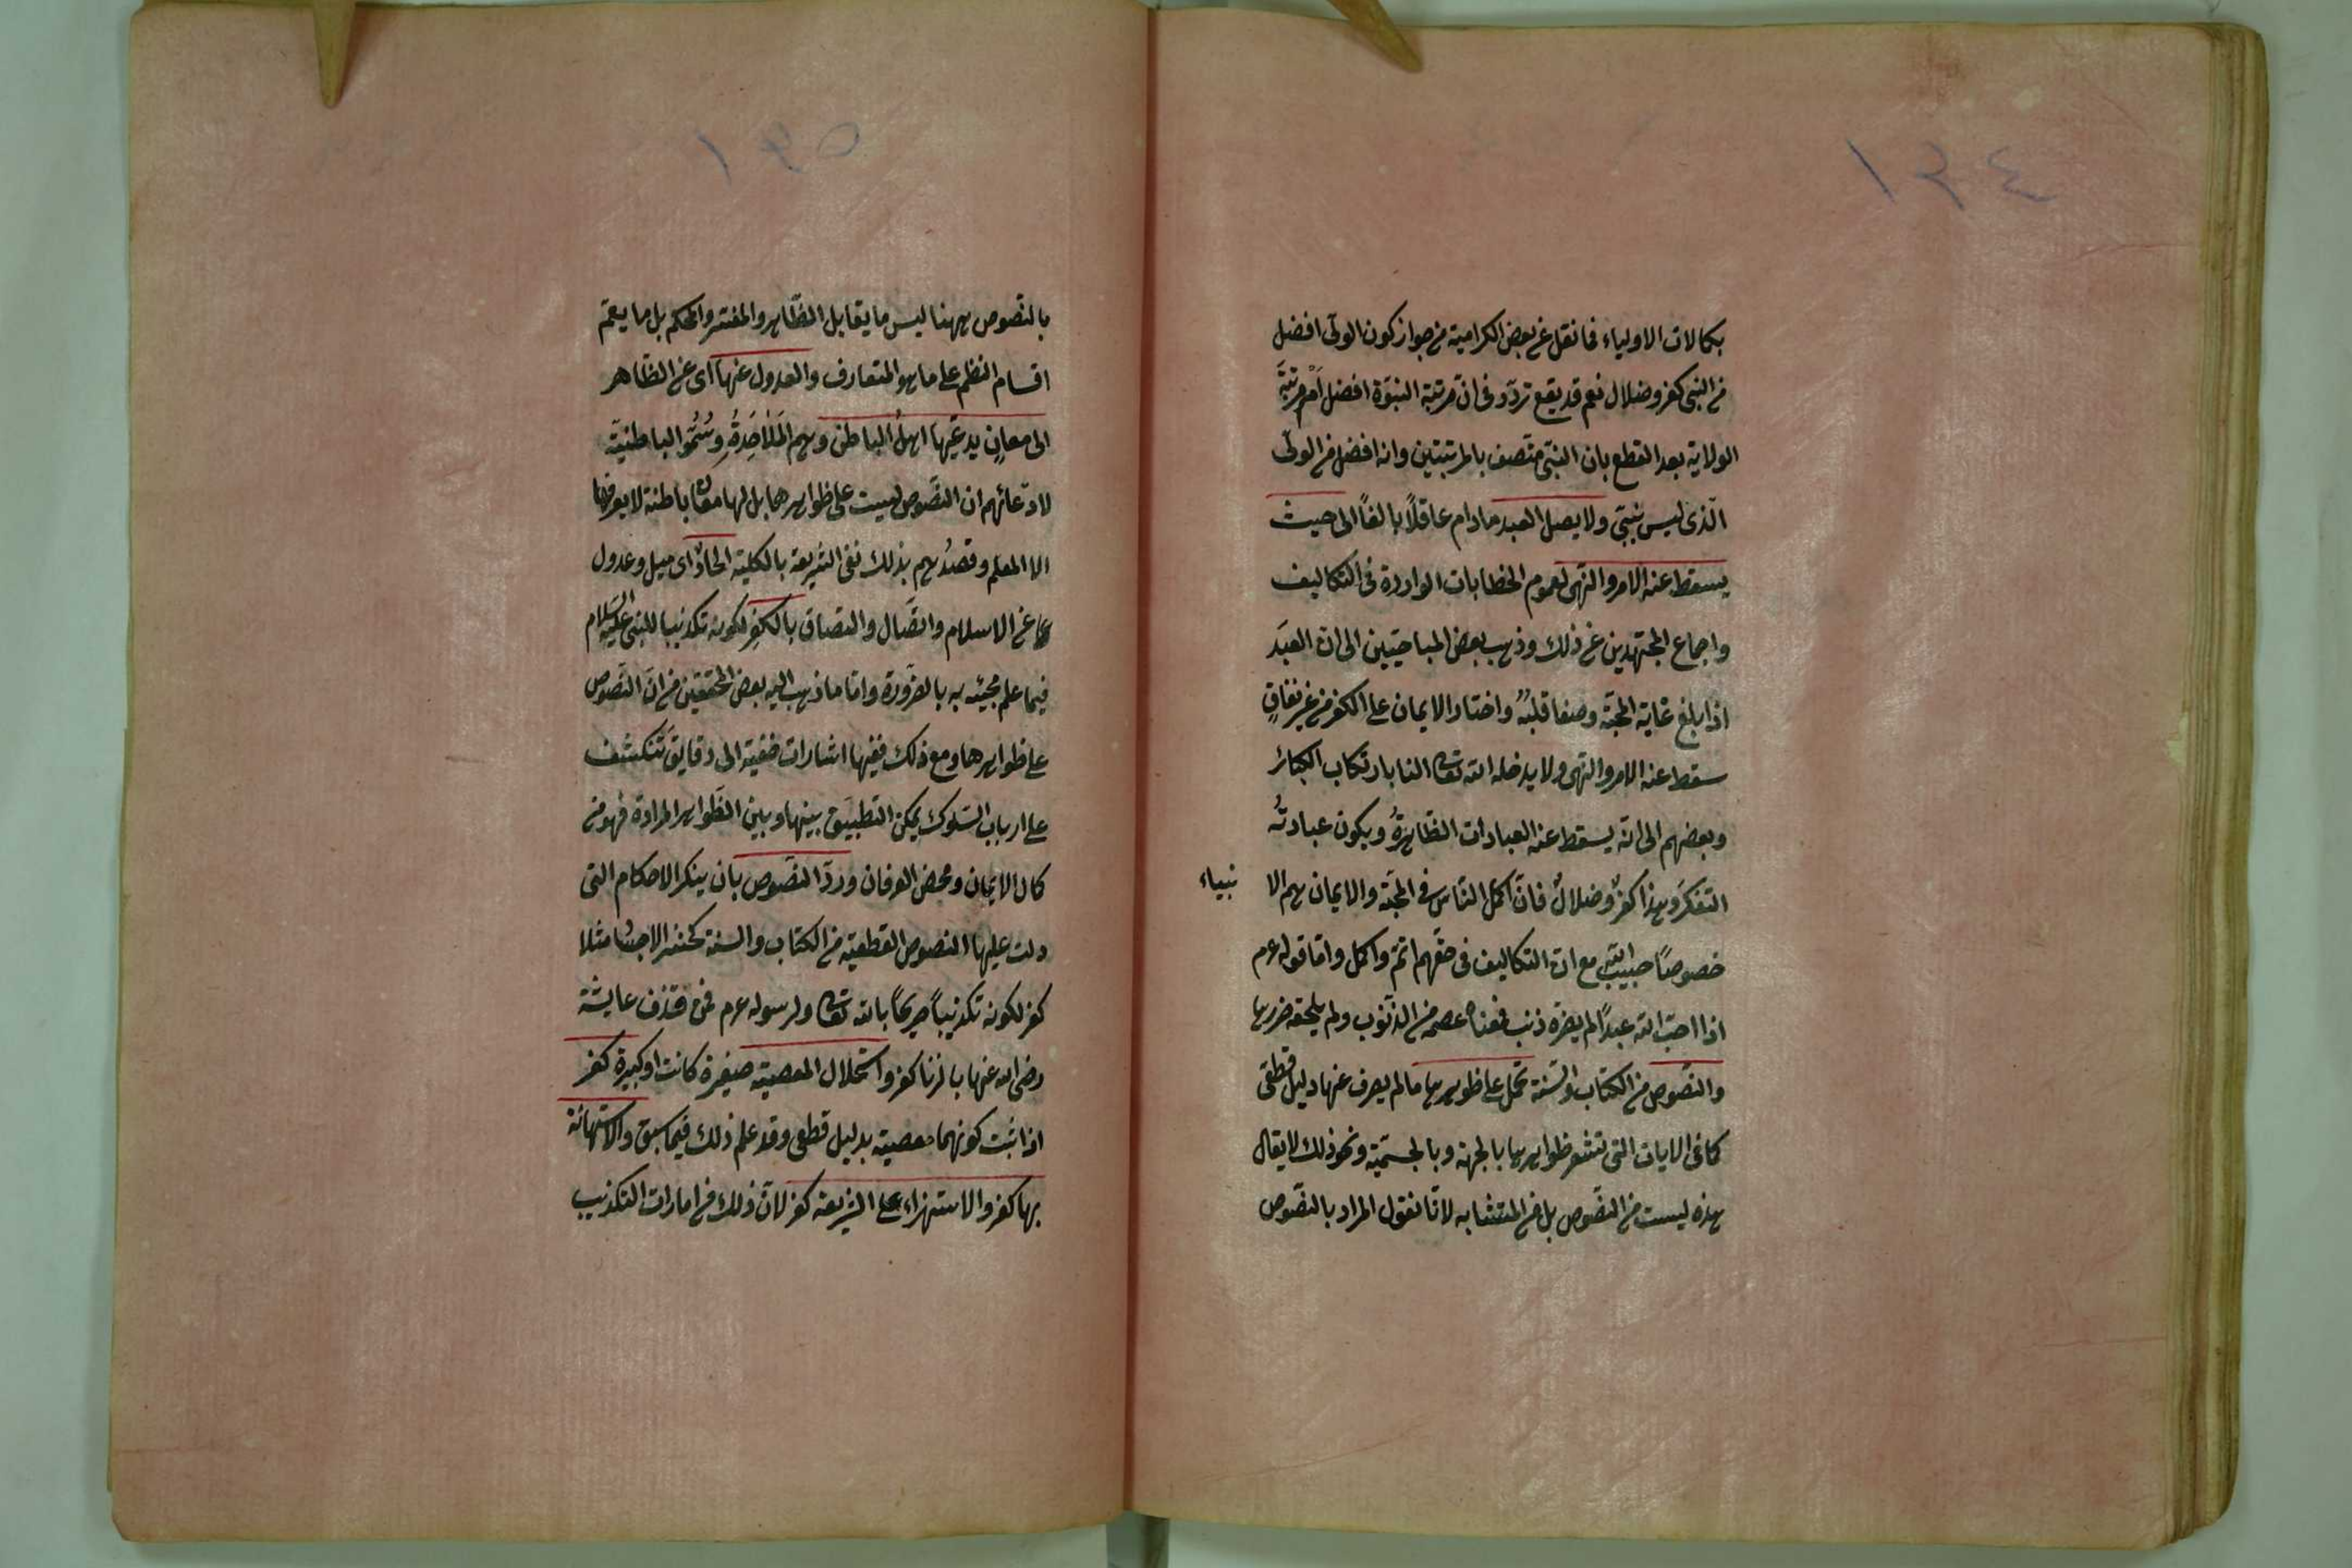 ١٣٤
بكمالات الاولياء فما نقل عن بعض الكرامية من جواز كون الولى افضل
من النبى كفر وضلال نعم قد يقع تردد فى ان مرتبة النبوة افضل أم مرتبة
الولاية بعد القطع بان النبى متصف بالمرتبتين وانه افضل من الولى
الذى ليس بنبى ولا يصل العبد مادام عاقلاً بالغاً الى حيث
يسقط عنه الامر والنهى لعموم الخطابات الواردة فى التكاليف
واجماع المجتهدين على ذلك وذهب بعض المباحيين الى ان العبد
اذا بلغ غاية المحبة وصفا قلبه واختار الايمان على الكفر من غير نفاقٍ
سقط عنه الامر والنهى ولا يدخله الله تعالى النار بارتكاب الكبائر
وبعضهم الى انه يسقط عنه العبادات الظاهرةُ ويكون عبادتُه
التفكرَ وهذا كفرٌ وضلالٌ فان اكمل الناس فى المحبة والايمان هم الا نبياء
خصوصاً حبيب الله مع ان التكاليف فى حقهم اتم واكمل واما قوله عم
اذا احب الله عبداً لم يضره ذنب فمعناه عصمه من الذنوب ولم يلحقه ضررها
والنصوص من الكتاب والسنة تحمل على ظوهرها مالم يصرف عنها دليل قطعى
كما فى الايات التى تشعر ظواهرها بالجهة وبالجسمية ونحو ذلك لايقال
هذه ليست من النصوص بل من المتشابه لانا نقول المراد بالنصوص
١٣٥
بالنصوص ههنا ليس ما يقابل الظاهر والمفسر والمحكم بل ما يعم
اقسام النظم على ما هو المتعارف والعدول عنها اى عن الظاهر
الى معانٍ يدعيها اهل الباطن وهم المَلَاحِدَةُ وسُمُّوا الباطنيّة
لادعائهم ان النصوص ليست على ظواهرها بل لها معان باطنة لا يعرفها
الا المعلم وقصدُهم بذلك نفى الشريعة بالكلية الحادٌ اى ميل وعدول
عن الاسلام واتصال والتصاق بالكفرِ لكونه تكذيبا للنبى عليه السلام
فيما علم مجيئه به بالضرورة واما ما ذهب اليه بعض المحققين من ان النصوص
على ظواهرها ومع ذلك ففيها اشارات خفية الى دقايق تنكشف
على ارباب السلوك يمكن التطبيق بينها وبين الظواهر المرادة فهو من
كمال الايمان ومحض العرفان وردّ النصوص بان ينكر الاحكام التى
دلت عليها النصوص القطعية من الكتاب والسنة كحشر الاجساد مثلا
كفر لكونه تكذيباً صريحاً بالله تعالى ولرسوله عم فمن قذف عايشة
رضى الله عنها بالزنا كفر واستحلال المعصية صغيرة كانت او كبيرة كفر
اذا ثبت كونهما معصية بدليل قطعى وقد علم ذلك فيما سبق والاستهانة
بها كفر والاستهزاء على الشريعة كفر لان ذلك من امارات التكذيب